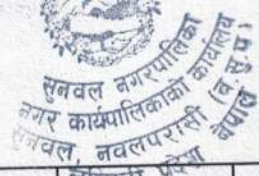 सुनवल नगरपालिका
नगर कार्यपालिकाको कार्यालय
सुनवल, नवलपरासी (ब.सु.प.)
प्रदेश
नेपाल